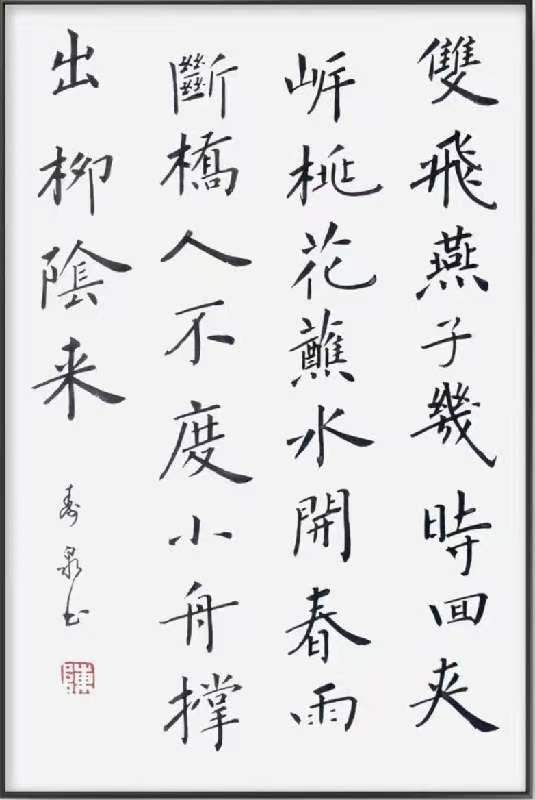 雙飛燕子幾時囬夾
岸桃花蘸水開春雨
斷橋人不度小舟撐
出柳陰来
寿泉书